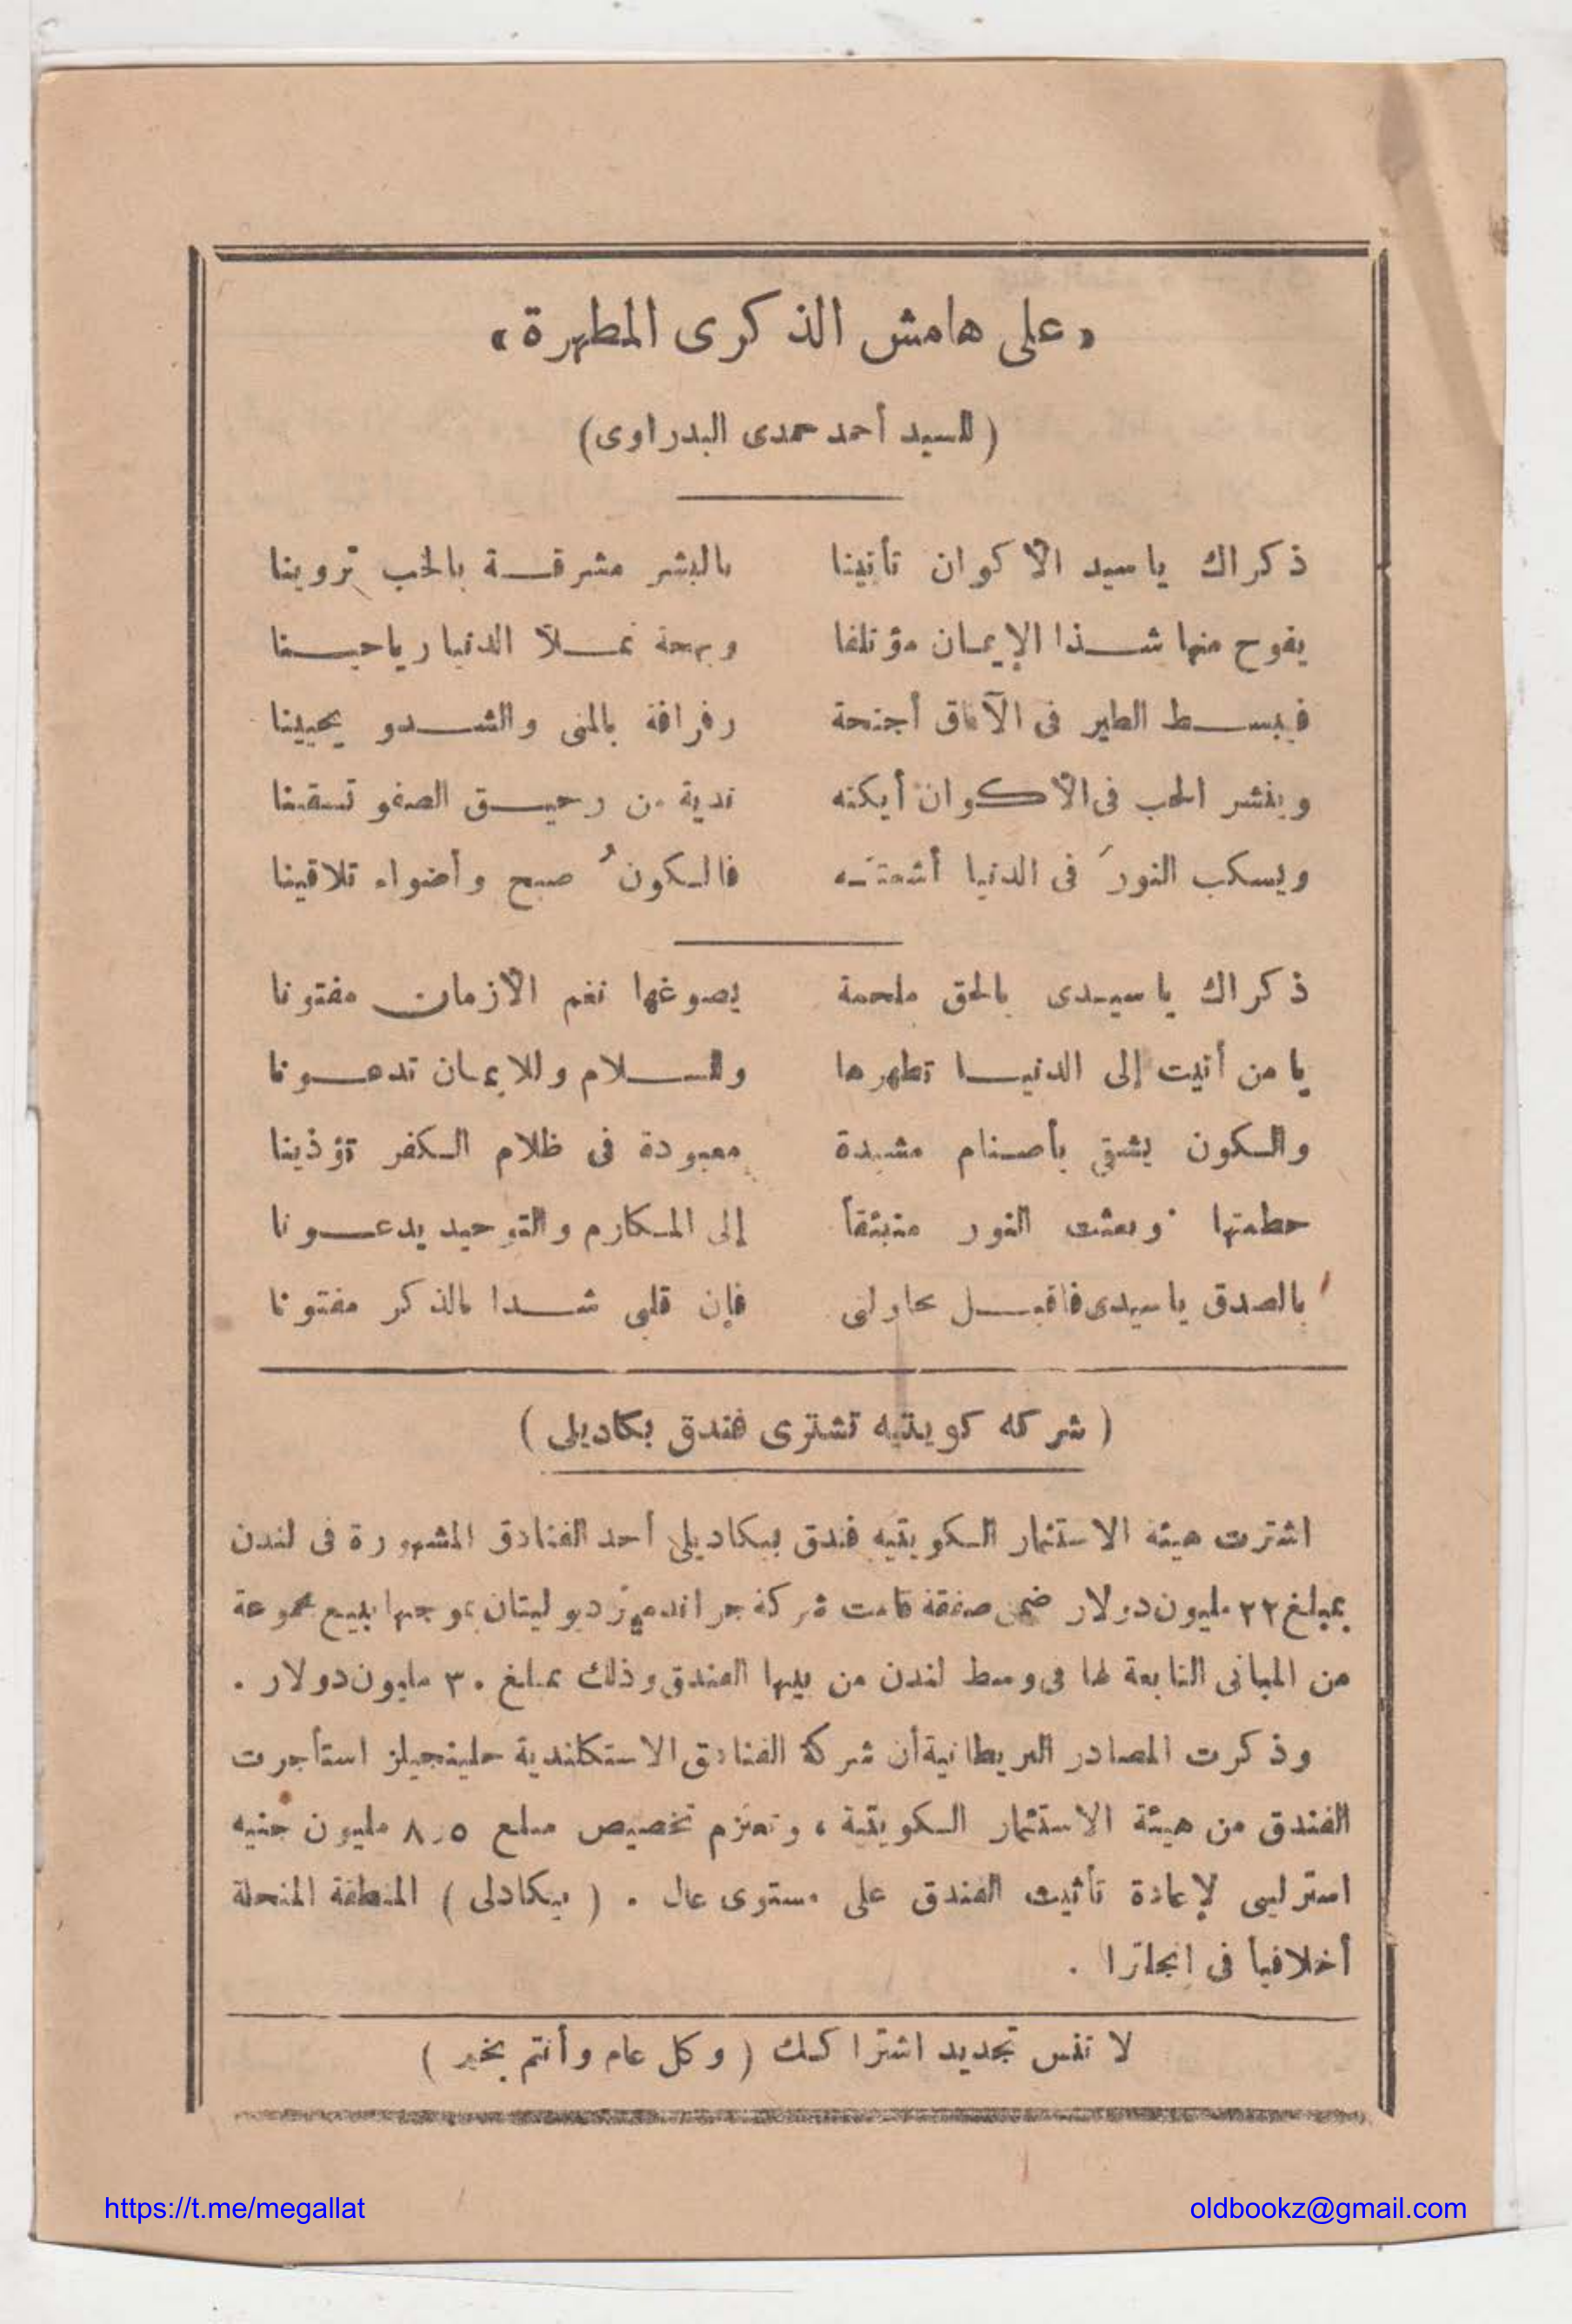 « على هامش الذكرى المطهرة »
( للسيد أحمد حمدى البدراوى )
ذكراك ياسيد الأكوان تأتينا بالبشر مشرقة بالحب تروينا
يفوح منها شذا الإيمان مؤتلفا وبهجة تملأ الدنيا رياحينا
فيبسط الطير فى الآفاق أجنحة رفرافة بالمنى والشدو يحيينا
وينشر الحب فى الأكوان أيكته ندية من رحيق الصفو تسقينا
ويسكب النورَ فى الدنيا أشعته فالكونُ صبح وأضواء تلاقينا
ذكراك ياسيدى بالحق ملحمة يصوغها نغم الأزمان مفتونا
يا من أتيت إلى الدنيا تطهرها وللسلام وللايمان تدعونا
والكون يشقى بأصنام مشيدة معبودة فى ظلام الكفر تؤذينا
حطمتها وبعثت النور منبثقاً إلى المكارم والتوحيد يدعونا
بالصدق ياسيدى فاقبل محاولتى فإن قلبى شدا بالذكر مفتونا
( شركه كويتيه تشترى فندق بكاديلى )
اشترت هيئة الاستثمار الكويتيه فندق بيكاديلى أحد الفنادق المشهورة فى لندن
بمبلغ ٢٢ مليون دولار ضمن صفقة قامت شركة جراند ميتروبوليتان بموجبها ببيع مجموعة
من المبانى التابعة لها فى وسط لندن من بينها الفندق وذلك بمبلغ ٣٠ مليون دولار .
وذكرت المصادر البريطانية أن شركة الفنادق الاستكلندية جلينجيلز استأجرت
الفندق من هيئة الاستثمار الكويتية ، وتعتزم تخصيص مبلغ ٨٫٥ مليون جنيه
استرلينى لإعادة تأثيث الفندق على مستوى عال . ( بيكادلى ) المنطقة المنحلة
أخلاقيا فى انجلترا .
لا تنس تجديد اشتراكك ( وكل عام وأنتم بخير )
https://t.me/megallat
oldbookz@gmail.com